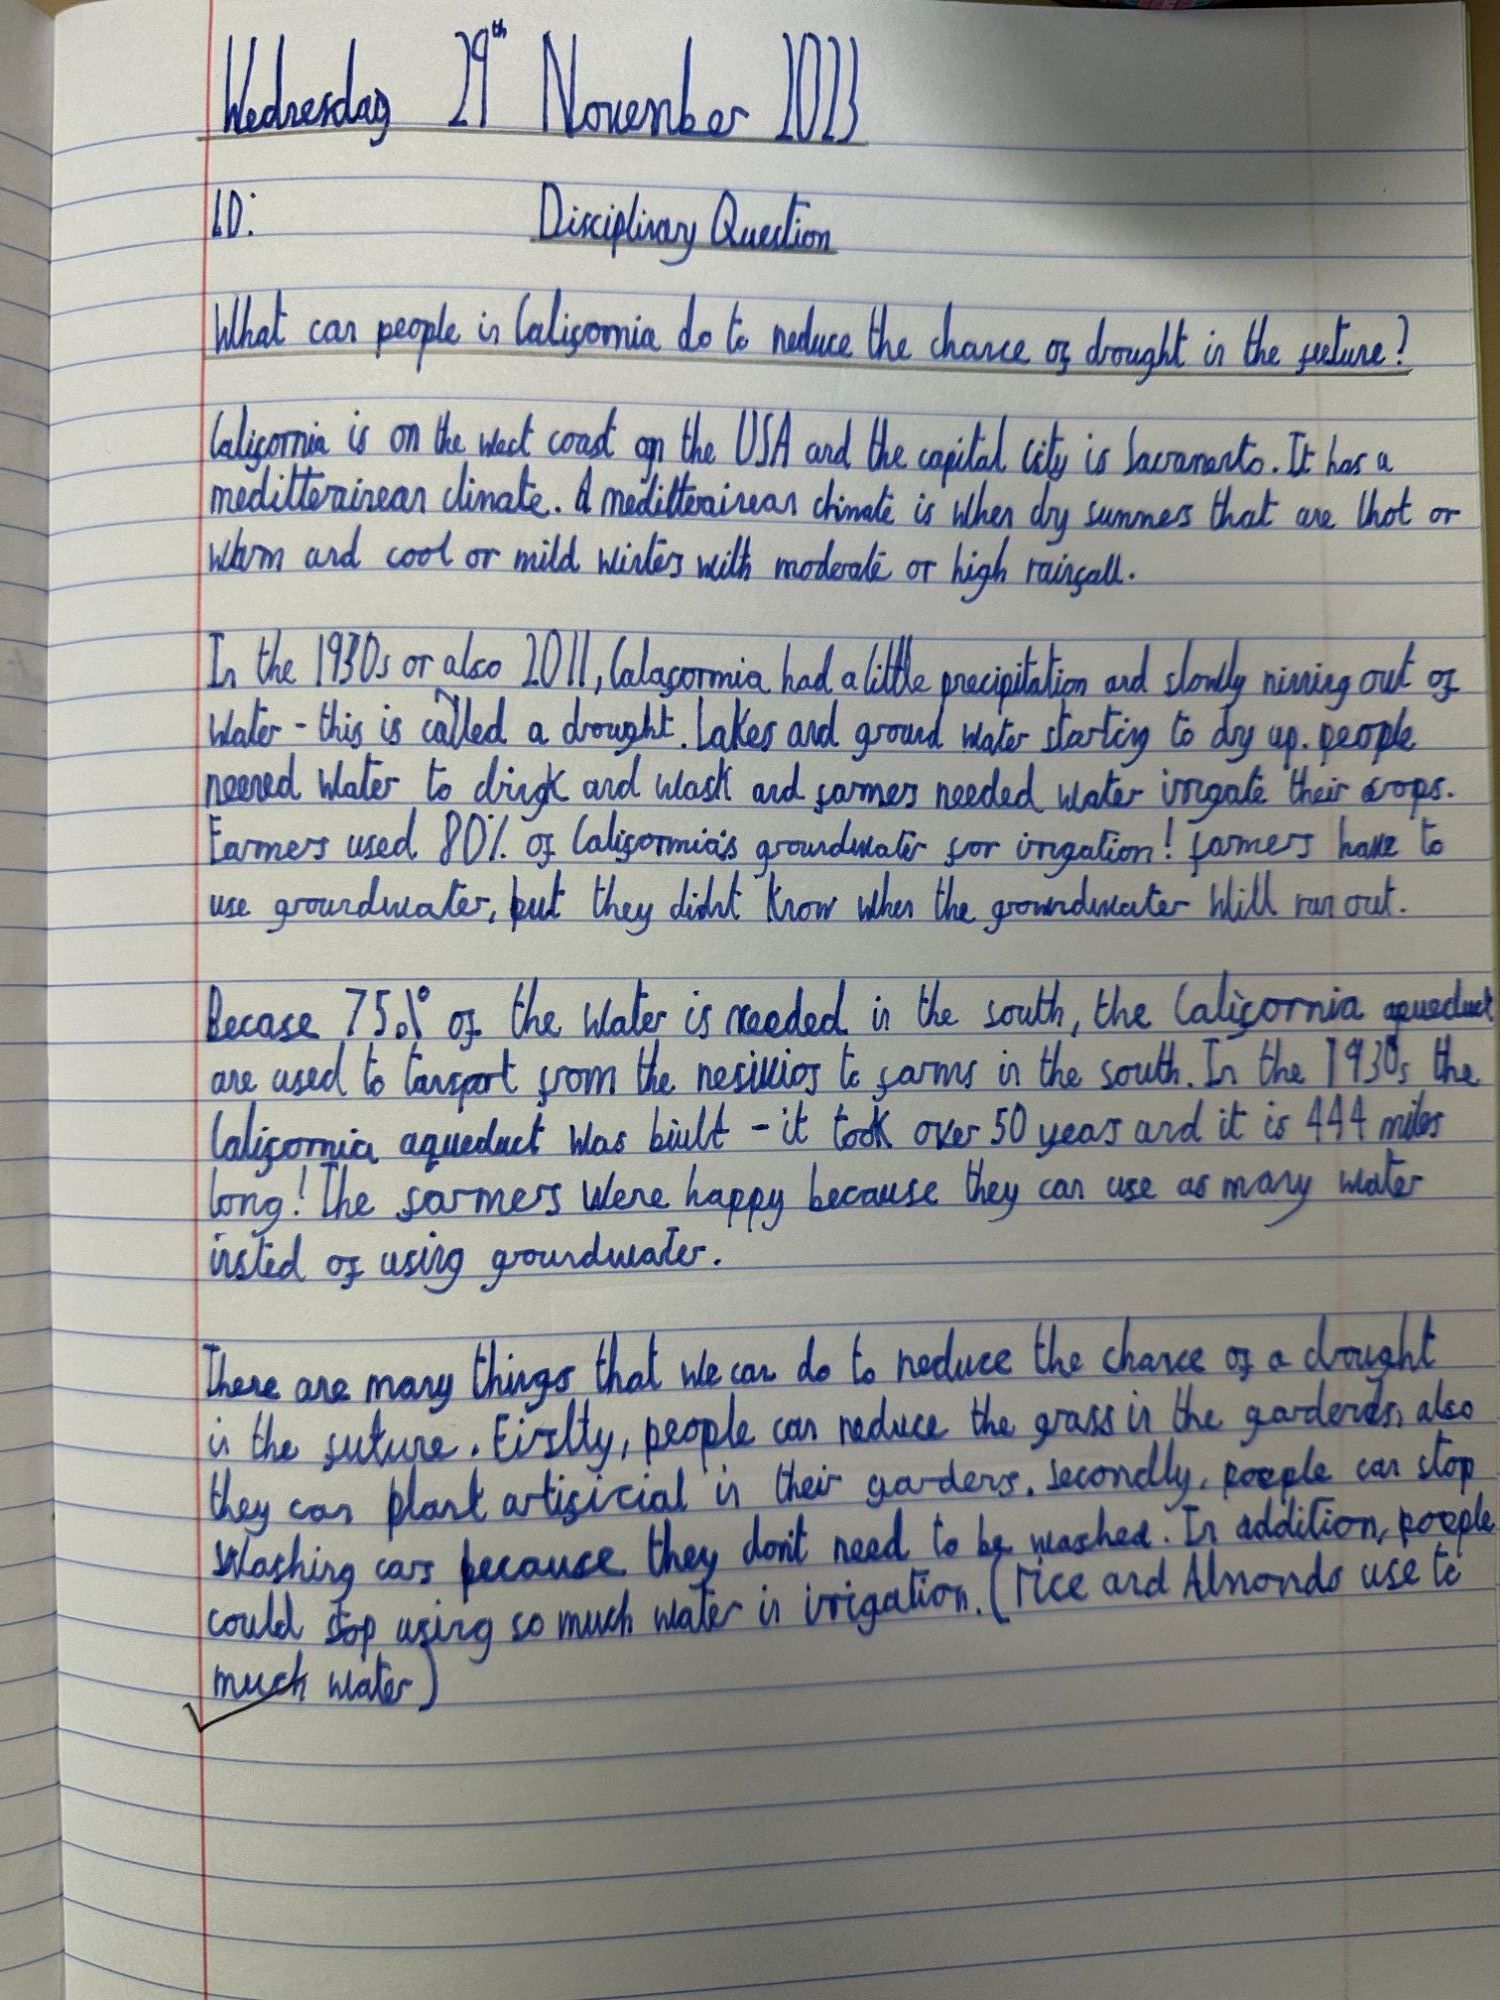 Wednesday 29th November 2023
LO: Disciplinary Question
What can people in California do to reduce the chance of drought in the fueture?
California is on the west coast on the USA and the capital city is Sacramento. It has a
meditterainean climate. A meditterainean climate is when dry summers that are hot or
warm and cool or mild winters with moderate or high rainfall.
In the 1930s or also 2011, Calafornia had a little precipitation and slowly nirring out of
water - this is called a drought. Lakes and ground water starting to dry up. people
neered water to drink and wash and farmers needed water irrigate their crops.
Farmers used 80% of California's groundwater for irrigation! farmers have to
use groundwater, but they didnt know when the groundwater will ran out.
Becase 75% of the water is needed in the south, the California aqueduct
are used to tansport from the to farms in the south. In the 1930s the
California aqueduct was biult - it took over 50 years and it is 444 miles
long! The farmers were happy because they can use as many water
insted of using groundwater.
There are many things that we can do to reduce the chance of a drought
in the future. Firstly, people can reduce the grass in the gardends, also
they can plant artificial in their gardens. Secondly, people can stop
washing cars because they don't need to be washed. In addition, people
could stop using so much water in irrigation. (rice and Almonds use to
much water)